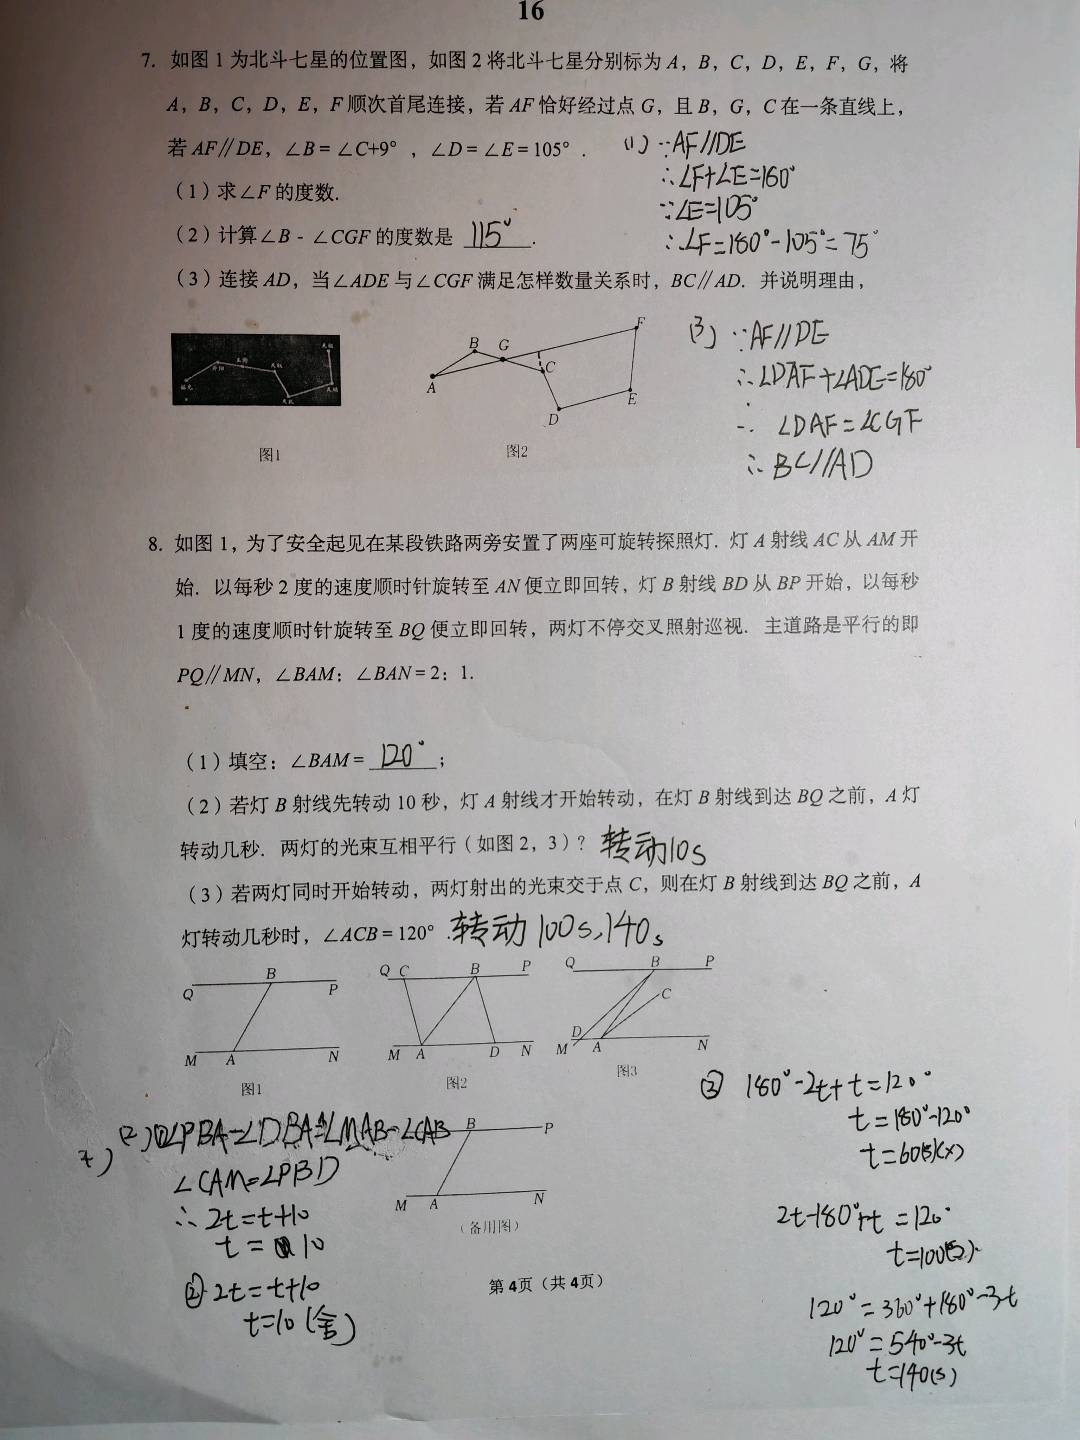 16
7. 如图 1 为北斗七星的位置图，如图 2 将北斗七星分别标为 A，B，C，D，E，F，G，将
A，B，C，D，E，F 顺次首尾连接，若 AF 恰好经过点 G，且 B，G，C 在一条直线上，
若 AF∥DE，∠B = ∠C+9°，∠D = ∠E = 105°．
(1) ∵AF//DE
∴∠F+∠E=180°
∵∠E=105°
∴∠F=180°-105°=75°
（1）求∠F 的度数.
（2）计算∠B - ∠CGF 的度数是 115°.
（3）连接 AD，当∠ADE 与∠CGF 满足怎样数量关系时，BC∥AD．并说明理由，
B G F A C D E
图1
图2
(3) ∵AF//DE
∴∠DAF+∠ADE=180°
∴ ∠DAF=∠CGF
∴BC//AD
8. 如图 1，为了安全起见在某段铁路两旁安置了两座可旋转探照灯．灯 A 射线 AC 从 AM 开
始．以每秒 2 度的速度顺时针旋转至 AN 便立即回转，灯 B 射线 BD 从 BP 开始，以每秒
1 度的速度顺时针旋转至 BQ 便立即回转，两灯不停交叉照射巡视．主道路是平行的即
PQ∥MN，∠BAM：∠BAN = 2：1.
（1）填空：∠BAM = 120°；
（2）若灯 B 射线先转动 10 秒，灯 A 射线才开始转动，在灯 B 射线到达 BQ 之前，A 灯
转动几秒．两灯的光束互相平行（如图 2，3）？ 转动10s
（3）若两灯同时开始转动，两灯射出的光束交于点 C，则在灯 B 射线到达 BQ 之前，A
灯转动几秒时，∠ACB = 120°． 转动 100s，140s
Q B P M A N
图1
Q C B P M A D N
图2
Q B P C D M A N
图3
B P M A N
（备用图）
(2)①∠PBA-∠DBA=∠MAB-∠CAB
∠CAM=∠PBD
∴2t=t+10
t=10
② 2t=t+10
t=10 (舍)
② 180°-2t+t=120°
t=180°-120°
t=60(s)(×)
2t-180°+t=120°
t=100(s).
120°=360°+180°-3t
120°=540°-3t
t=140(s)
第 4页（共 4页）